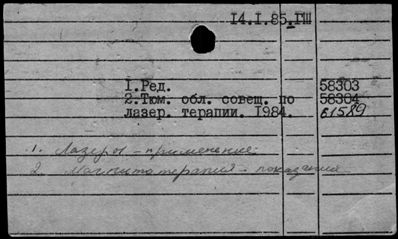 14.I.85.ГШ
1.Ред. 58303
2.Тюм. обл. совещ. по 58304
лазер. терапии. 1984. 61589
1. Лазеры – применение.
2. Магнитотерапия – показания